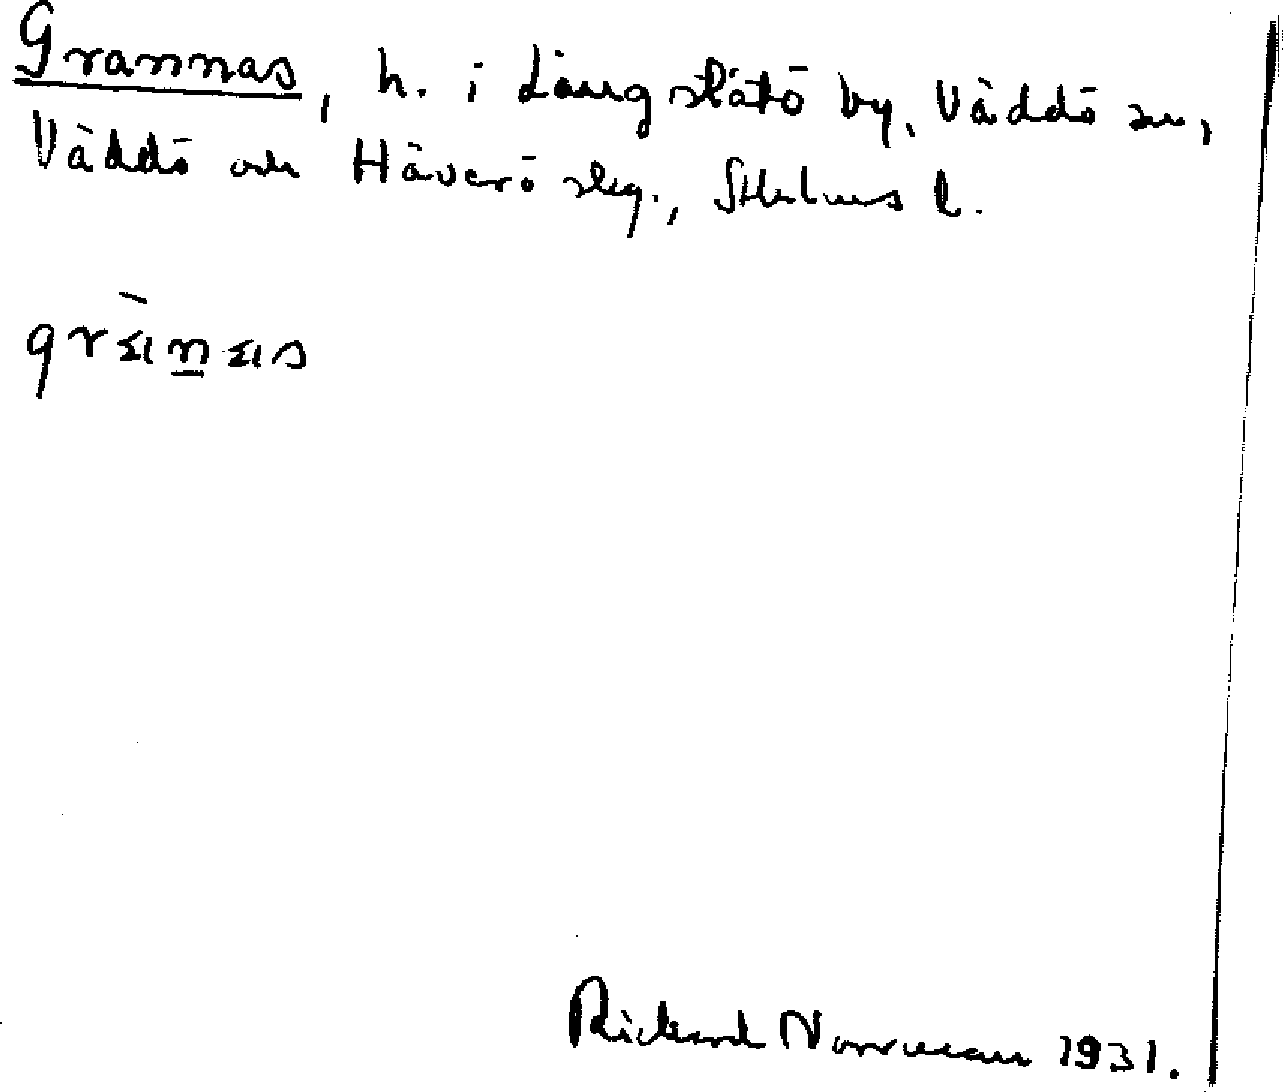 Grannas, h. i Långslätö by, Väddö sn,
Väddö och Häverö slg., Sthlms l.
Rickard Norrman 1931.